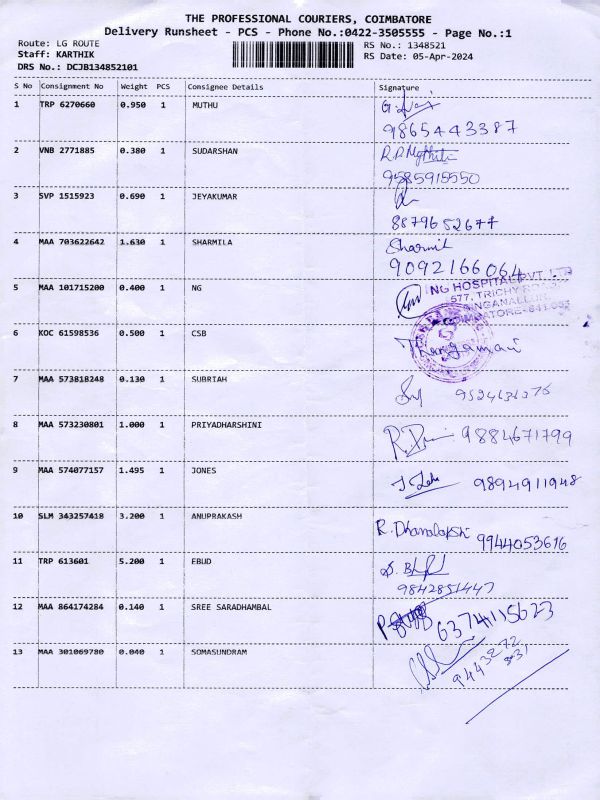 THE PROFESSIONAL COURIERS, COIMBATORE
Delivery Runsheet - PCS - Phone No.:0422-3505555 - Page No.:1
Route: LG ROUTE
RS No.: 1348521
Staff: KARTHIK
RS Date: 05-Apr-2024
DRS No.: DCJB134852101
S No Consignment No Weight PCS Consignee Details Signature
1 TRP 6270660 0.950 1 MUTHU
9865443387
2 VNB 2771885 0.380 1 SUDARSHAN
9585915550
3 SVP 1515923 0.690 1 JEYAKUMAR
8879652677
4 MAA 703622642 1.630 1 SHARMILA Sharmil
9092166064
5 MAA 101715200 0.400 1 NG NG HOSPITAL PVT. LTD
577, TRICHY ROAD
SINGANALLUR
COIMBATORE-641 005
6 KOC 61598536 0.500 1 CSB Thangamani
7 MAA 573818248 0.130 1 SUBRIAH
8 MAA 573230801 1.000 1 PRIYADHARSHINI 9884671799
9 MAA 574077157 1.495 1 JONES 9894911948
10 SLM 343257418 3.200 1 ANUPRAKASH R. Dhanalakshi 9944053616
11 TRP 613601 5.200 1 EBUD
9842851447
12 MAA 864174284 0.140 1 SREE SARADHAMBAL 6374115623
13 MAA 301069780 0.040 1 SOMASUNDRAM